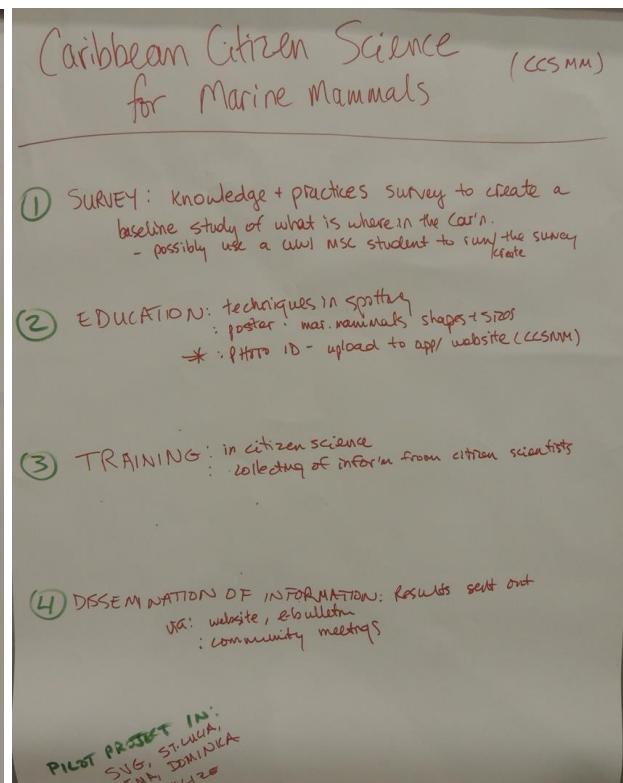 Caribbean Citizen Science
for Marine Mammals
(CCSMM)
1 SURVEY: Knowledge + practices survey to create a
baseline study of what is where in the Car'n.
- possibly use a UWI MSC student to run/ the survey
create
2 EDUCATION: techniques in spotting
: poster · mar. mammals shapes + sizes
* : PHOTO ID - upload to app/ website (CCSMM)
3 TRAINING: in citizen science
: collecting of infor'n from citizen scientists
4 DISSEMINATION OF INFORMATION: Results sent out
via: website, e-bulletin
: community meetings
PILOT PROJECT IN:
SVG, ST. LUCIA,
DOMINIKA